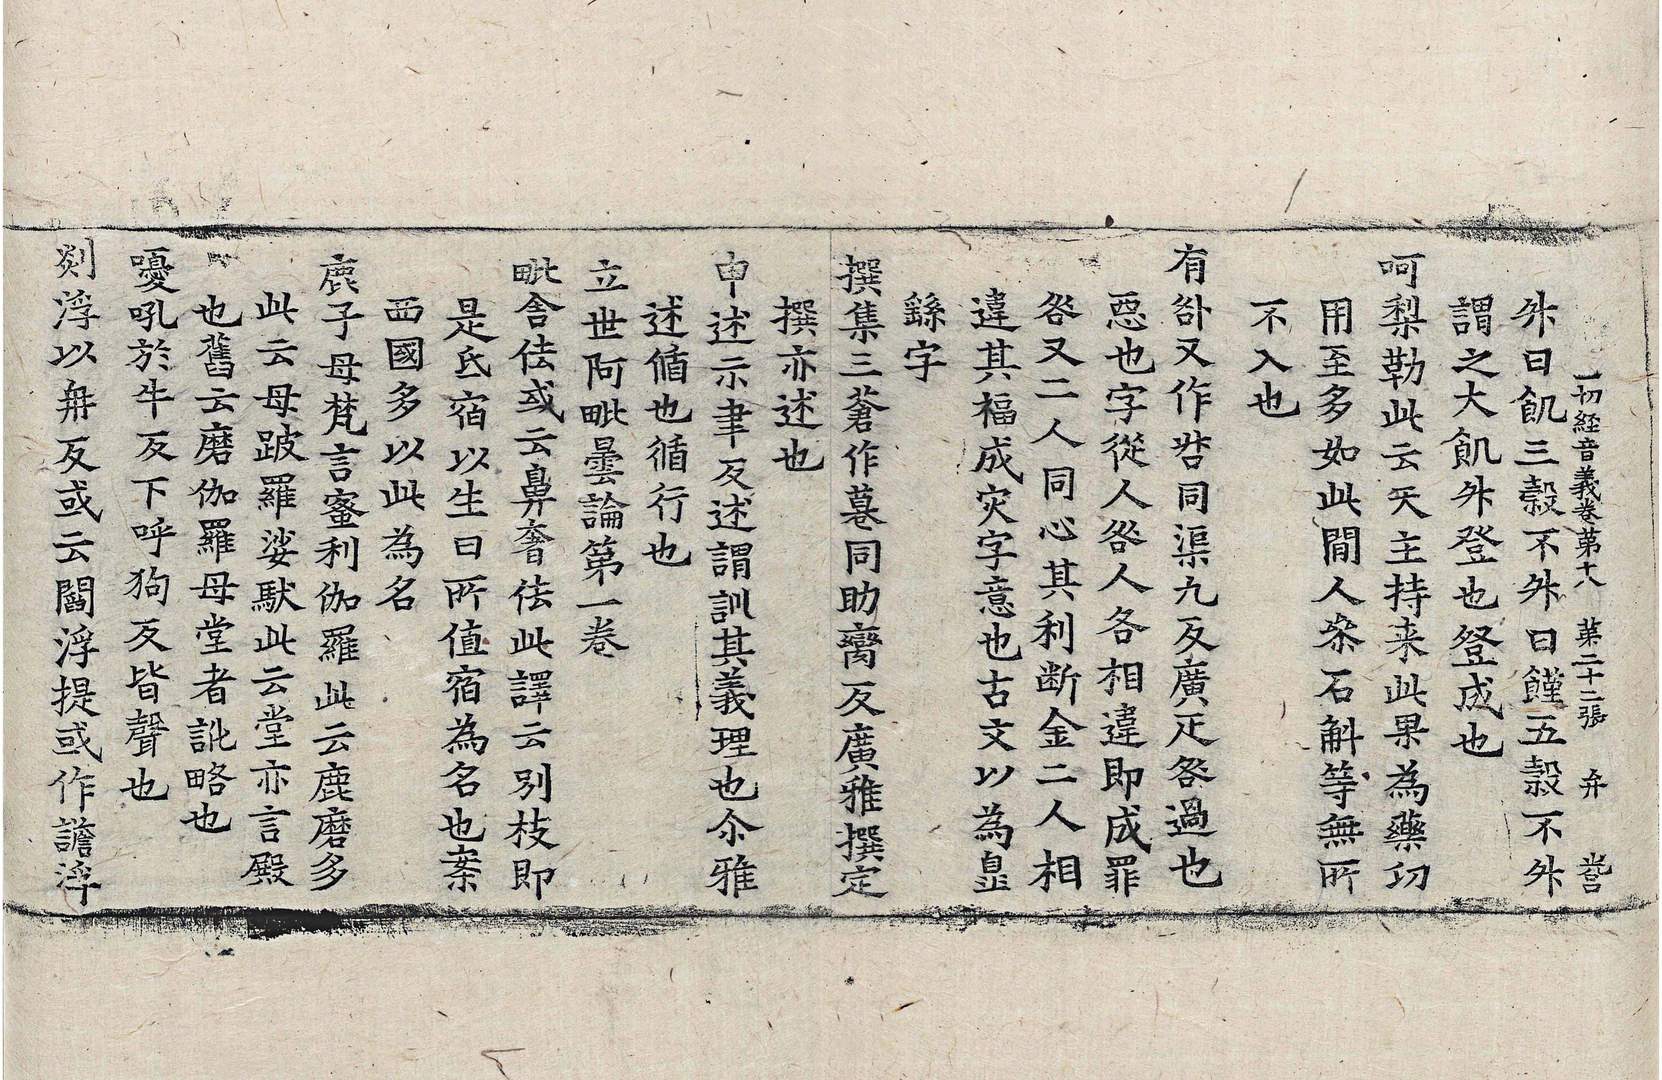 一切経音義卷第十八 第二十二張 弁 訔
外曰飢三穀不外外曰饉五穀不外
謂之大飢外登也登成也
呵梨勒此云天主持来此果為藥切
用至多如此間人叅石斛等無所
不入也
有咎又作呰同渠九反廣疋咎過也
惡也字從人咎人各相違即成罪
咎又二人同心其利断金二人相
違其福成灾字意也古文以為皐
繇字
撰集三蒼作䉵同助臠反廣雅撰定
撰亦述也
申述示聿反述謂訓其義理也尒雅
述循也循行也
立世阿毗曇論第一卷
毗舍佉或云鼻奢佉此譯云別枝即
是氐宿以生日所值宿為名也案
西國多以此為名
鹿子母梵言蜜利伽羅此云鹿磨多
此云母跛羅娑馱此云堂亦言殿
也舊云磨伽羅母堂者訛略也
嚘吼於牛反下呼狗反皆聲也
剡浮以冉反或云閻浮提或作譫浮